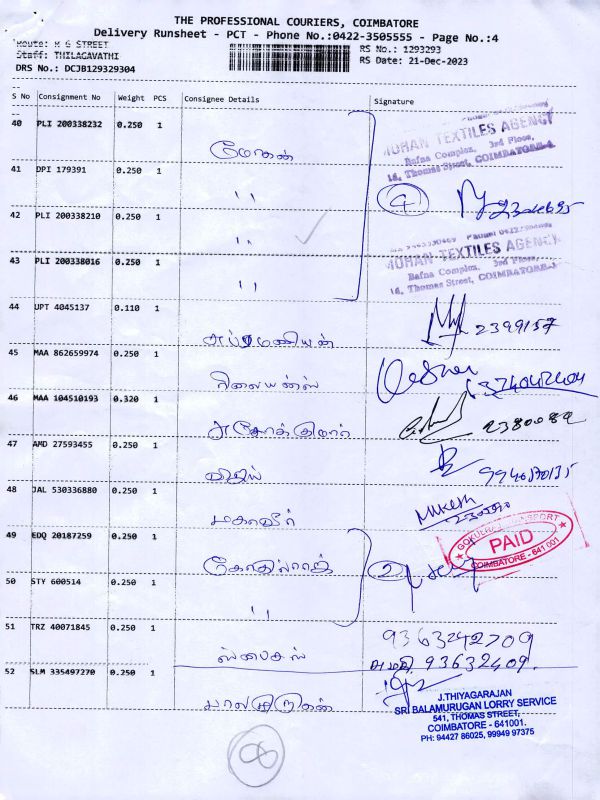 THE PROFESSIONAL COURIERS, COIMBATORE
Delivery Runsheet - PCT - Phone No.:0422-3505555 - Page No.:4
Route: M G STREET
Staff: THILAGAVATHI
DRS No.: DCJB129329304
RS No.: 1293293
RS Date: 21-Dec-2023
S No Consignment No Weight PCS Consignee Details Signature
40 PLI 200338232 0.250 1 மோகன்
MOHAN TEXTILES AGENCY
Rafna Complex, 3rd Floor,
16, Thomas Street, COIMBATORE-1.
41 DPI 179391 0.250 1 "
4
42 PLI 200338210 0.250 1 "
43 PLI 200338016 0.250 1 "
MOHAN TEXTILES AGENCY
Rafna Complex, 3rd Floor,
16, Thomas Street, COIMBATORE-1.
44 UPT 4045137 0.110 1 சுப்ரமணியன்
2399157
45 MAA 862659974 0.250 1 ரிலையன்ஸ்
46 MAA 104510193 0.320 1 அசோக்குமார்
47 AMD 27593455 0.250 1 விஜய்
48 JAL 530336880 0.250 1 மகாவீர்
Mukesh
49 EDQ 20187259 0.250 1 கோகுல்ராஜ்
GOKULRAJ TRANSPORT
PAID
COIMBATORE - 641 001
2
50 STY 600514 0.250 1 "
51 TRZ 40071845 0.250 1 ஸ்பைசஸ்
9363242709
93632409.
52 SLM 335497270 0.250 1 பாலமுருகன்
J.THIYAGARAJAN
SRI BALAMURUGAN LORRY SERVICE
541, THOMAS STREET,
COIMBATORE - 641001.
PH: 94427 86025, 99949 97375
8